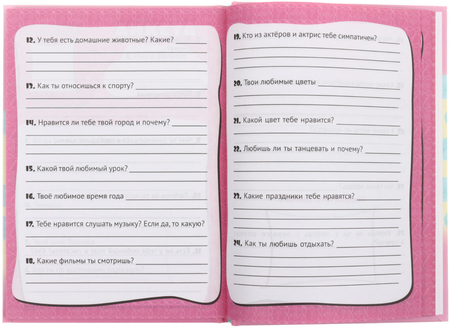 12. У тебя есть домашние животные? Какие?
13. Как ты относишься к спорту?
14. Нравится ли тебе твой город и почему?
15. Какой твой любимый урок?
16. Твоё любимое время года
17. Тебе нравится слушать музыку? Если да, то какую?
18. Какие фильмы ты смотришь?
19. Кто из актёров и актрис тебе симпатичен?
20. Твои любимые цветы
21. Какой цвет тебе нравится?
22. Любишь ли ты танцевать и почему?
23. Какие праздники тебе нравятся?
24. Как ты любишь отдыхать?